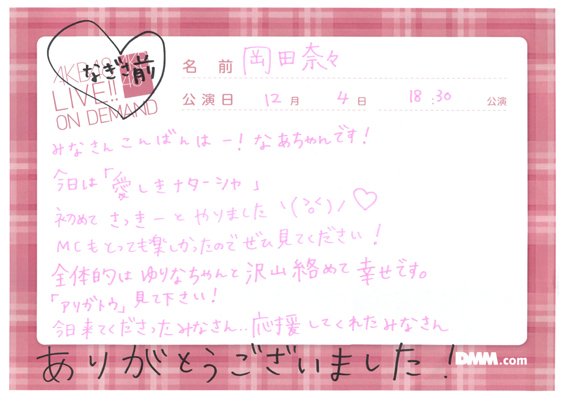 AKB48
LIVE!!
ON DEMAND
なぎ消前
名前 岡田奈々
公演日 12月 4日 18:30 公演
みなさんこんばんはー!なあちゃんです!
今日は「愛しきナターシャ」
初めてさっきーとやりましたヽ(>o<)ノ♡
MCもとっても楽しかったのでぜひ見てください!
全体的はゆりなちゃんと沢山絡めて幸せです。
「アリガトウ」見て下さい!
今日来てくださったみなさん..応援してくれたみなさん
ありがとうございました!
DMM.com